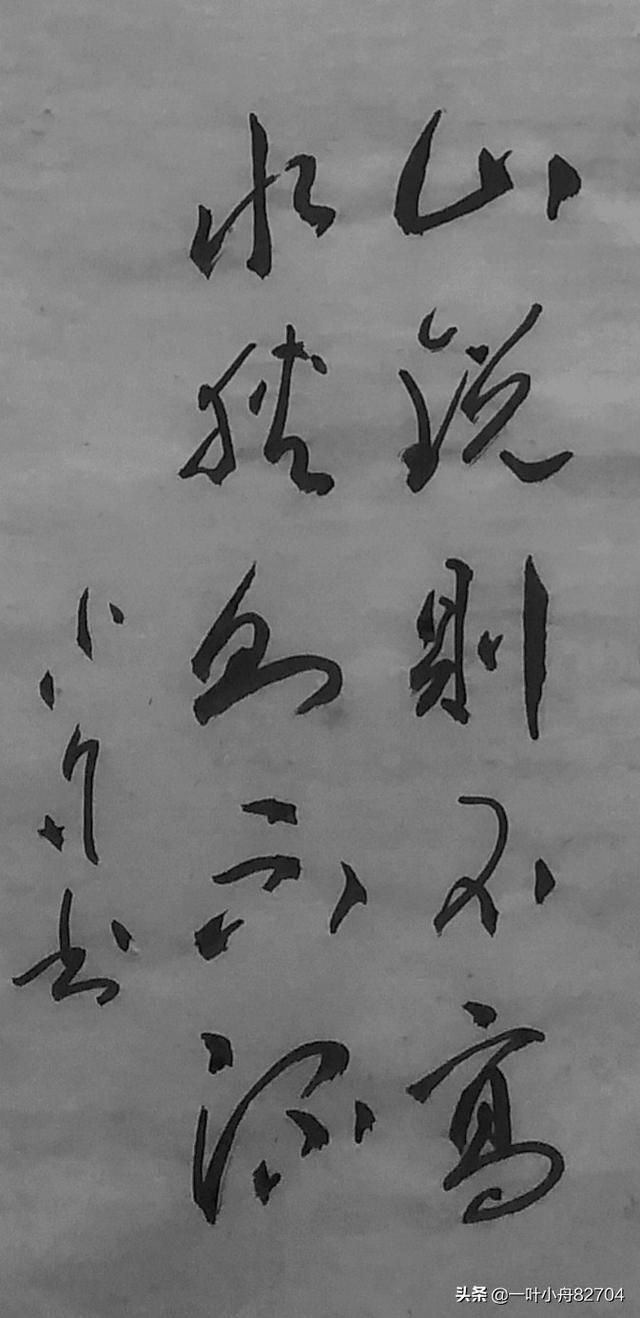 山锐则不高
水狭则不深
小舟书
头条 @一叶小舟82704